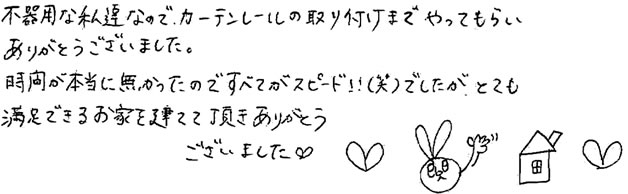 不器用な私達なので、カーテンレールの取り付けまでやってもらい
ありがとうございました。
時間が本当に無かったのですべてがスピード!!(笑)でしたが、とても
満足できるお家を建てて頂きありがとう
ございました♡